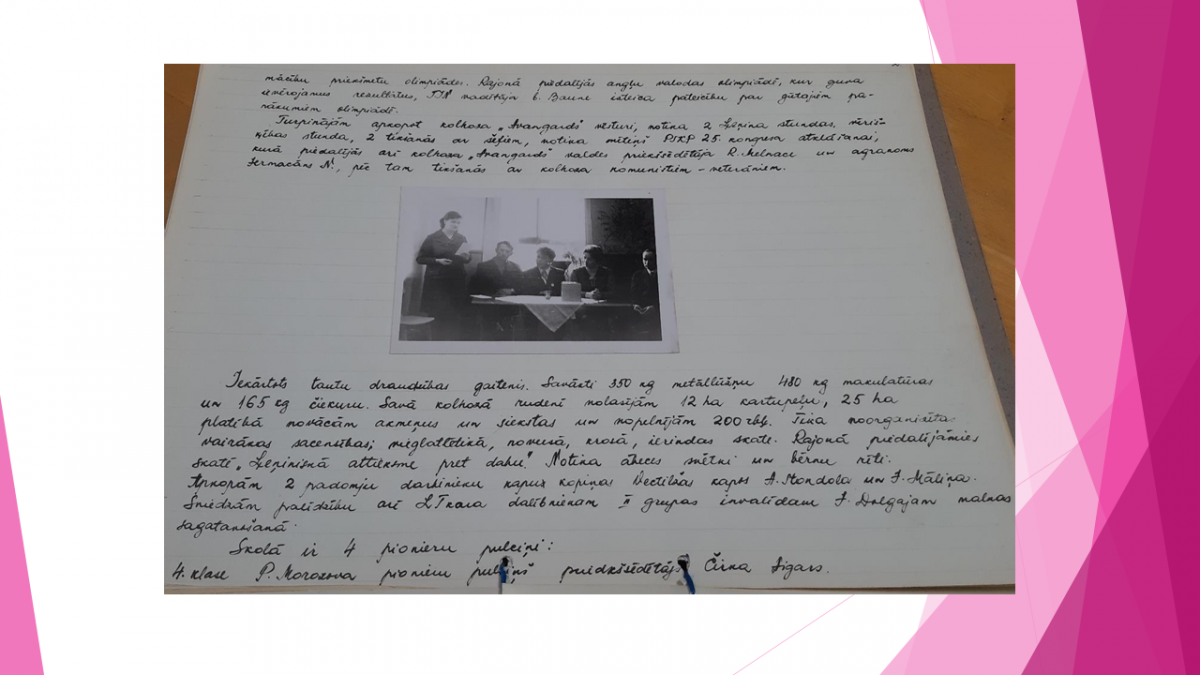 mācību priekšmetu olimpiādes. Rajonā piedalījās angļu valodas olimpiādē, kur guva
ievērojamus rezultātus, vadītāja Baune izteica pateicību par gūtajām pa-
nākumiem olimpiādē.
Turpinājām apkopot kolhoza „Avangards" vēsturi, notika 2 Ļeņina stundas,
stunda, 2 tikšanās ar šefiem, notika mītiņš PSKP 25. kongresa atklāšanai,
kurā piedalījās arī kolhoza „Avangards" valdes priekšsēdētāja R. Melnace un agronoms
Jermacāns N., pēc tam tikšanās ar kolhoza komunistiem - veterāniem.
Iekārtots tautu draudzības gaitenis. Savākti 350 kg metāllūžņu 480 kg makulatūras
un 165 kg čiekuru. Savā kolhozā rudenī nolasījām 12 ha kartupeļu, 25 ha
platībā novācām akmeņus un siekstas un nopelnījām 200 rbļ. Tika noorganizētas
vairākas sacensības; vieglatlētikā, krosā, ierindas skate. Rajonā piedalījāmies
skatē „Ļeņiniskā attieksme pret darbu". Notika ābeces svētki un bērnu rīti.
Apkopām 2 padomju darbinieku kapu kopiņas kapos A. Stondola un J. Māliņa.
Sniedzām palīdzību arī L T kara dalībniekam II grupas invalīdam J. Dolgajam malkas
sagatavošanā.
Skolā ir 4 pionieru pulciņi:
4. klase P. Morozova pionieru pulciņš priekšsēdētājs Čirka Aigars.